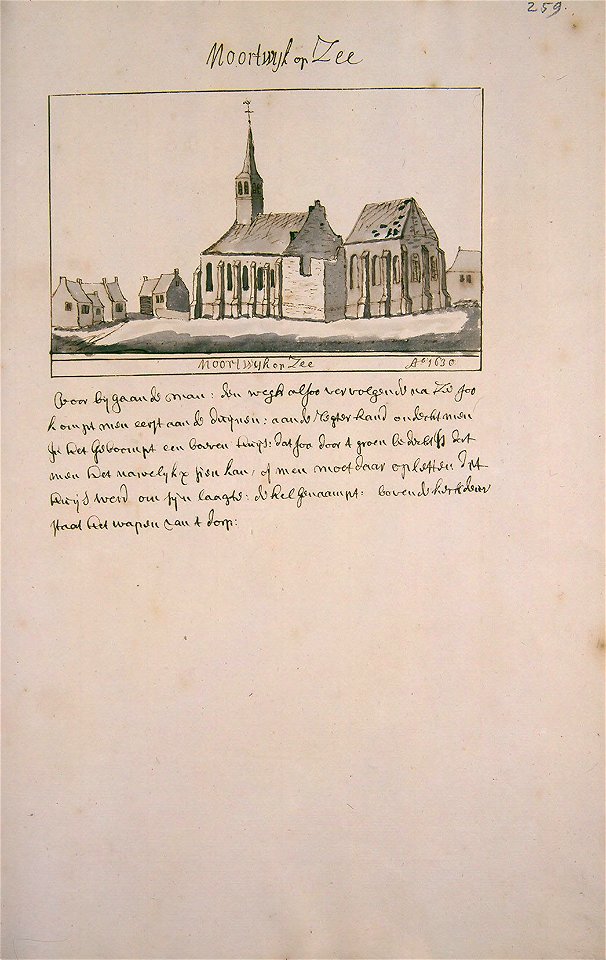 259.
Noortwyk op Zee
Noortwyk op Zee A° 1630
Voor by gaande man: den wegh alsoo vervolgende na Zee soo
kompt men eerst aan de duynen: aan de regter hand ondeckt men
in het Geboompt een boeren huys: dat soo door t groen bedeckt is dat
men het nawelyckx sien kan, of men moet daar op letten dit
huys werd om syn laagte: de hel Genaampt: boven de kerk deur
staat het wapen van t dorp: